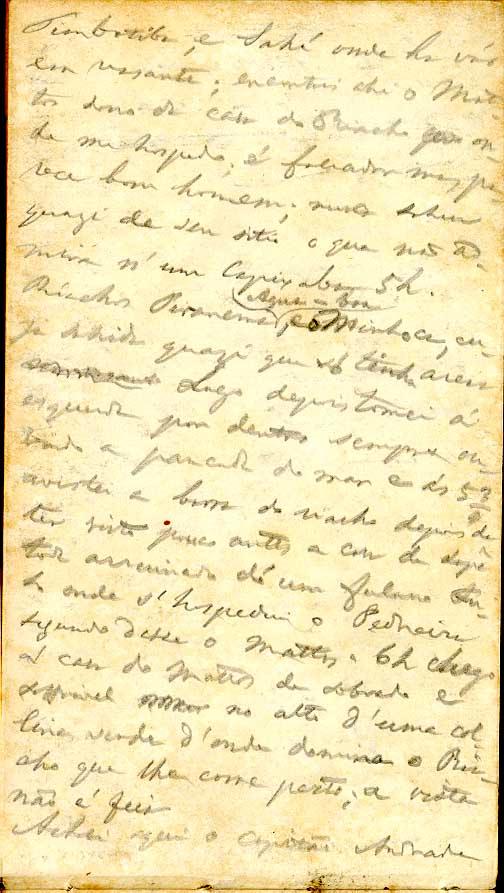 Pimbotiba, e Sahé onde ha váo
em vasante; encontrei ahi o Mat-
tos dono da casa do Riacho on-
de me hospedo, é fallador mas pa-
rece bom homem; nunca sahiu
quazi de seu sitio o que não ad-
mira n'um Capixaba 5h.
Agua-Boa
Riachos Piranema, e Minhoca, cu-
ja subida quazi que só tinha area
Logo depois tomei á
esquerda por dentro sempre ou-
vindo a pancada do mar e ás 5 3/4
avistei a barra do riacho depois de
ter visto pouco antes a casa de sopé
toda arruinada de um fulano
onde s'hospedou o Pedreira
segundo disse o Mattos. 6h chego
á casa do Mattos de sobrado e
soffrivel no alto d'uma col-
lina verde d'onde domina o Ria-
cho que lhe corre perto; a vista
não é feia
Achei aqui o capitão Andrade